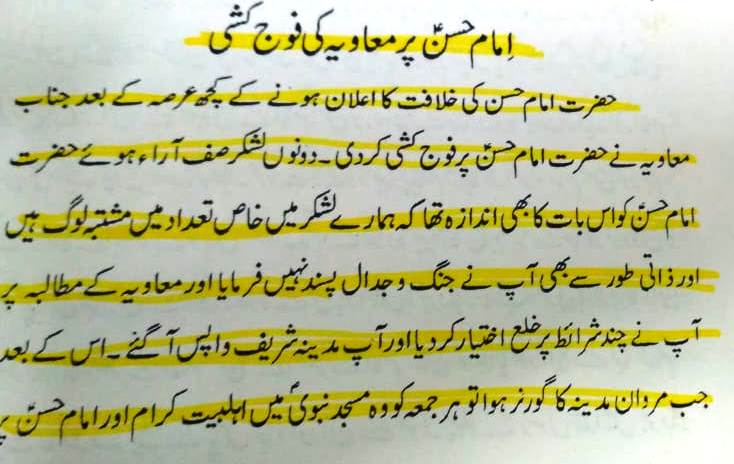 اِمام حسنؑ پر معاویہ کی فوج کشی
حضرت امام حسن کی خلافت کا اعلان ہونے کے کچھ عرصہ کے بعد جناب
معاویہ نے حضرت امام حسنؑ پر فوج کشی کر دی۔ دونوں لشکر صف آراء ہوئے حضرت
امام حسنؑ کو اس بات کا بھی اندازہ تھا کہ ہمارے لشکر میں خاص تعداد میں مشتبہ لوگ ہیں
اور ذاتی طور سے بھی آپ نے جنگ و جدال پسند نہیں فرمایا اور معاویہ کے مطالبہ پر
آپ نے چند شرائط پر خلع اختیار کر دیا اور آپ مدینہ شریف واپس آ گئے۔ اس کے بعد
جب مردان مدینہ کا گورنر ہوا تو ہر جمعہ کو وہ مسجد نبویؐ میں اہلبیت کرام اور امام حسنؑ پر